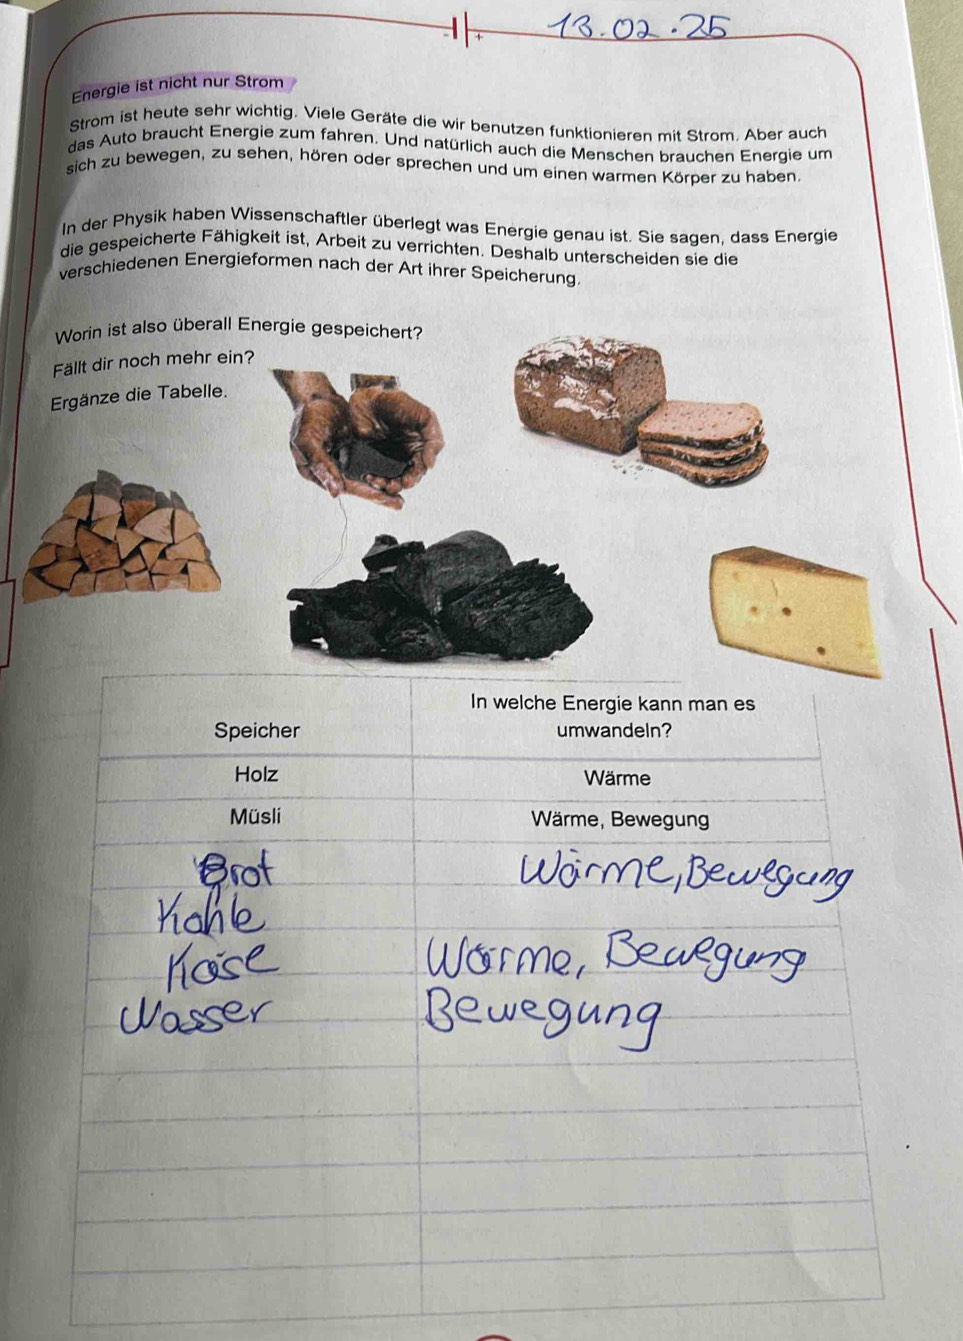 13.02.25
- +
Energie ist nicht nur Strom
Strom ist heute sehr wichtig. Viele Geräte die wir benutzen funktionieren mit Strom. Aber auch
das Auto braucht Energie zum fahren. Und natürlich auch die Menschen brauchen Energie um
sich zu bewegen, zu sehen, hören oder sprechen und um einen warmen Körper zu haben.
In der Physik haben Wissenschaftler überlegt was Energie genau ist. Sie sagen, dass Energie
die gespeicherte Fähigkeit ist, Arbeit zu verrichten. Deshalb unterscheiden sie die
verschiedenen Energieformen nach der Art ihrer Speicherung.
Worin ist also überall Energie gespeichert?
Fällt dir noch mehr ein?
Ergänze die Tabelle.
In welche Energie kann man es
Speicher umwandeln?
Holz Wärme
Müsli Wärme, Bewegung
Brot Wärme, Bewegung
Kohle
Käse Wärme, Bewegung
Wasser Bewegung